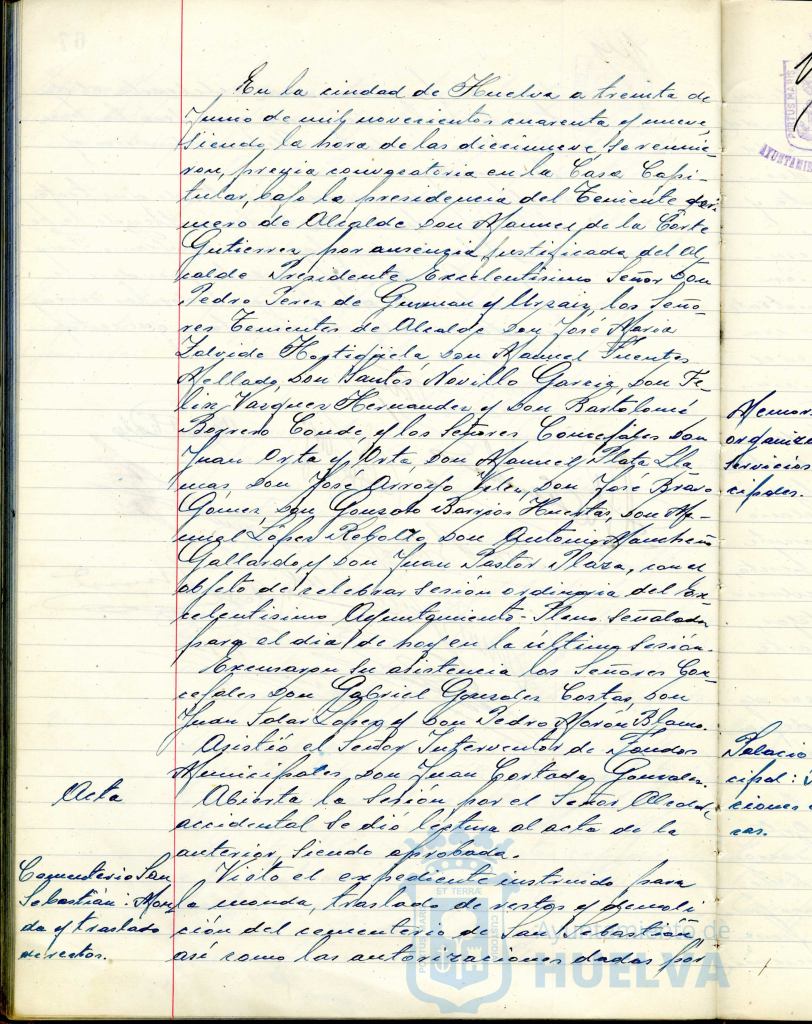 En la ciudad de Huelva a treinta de
Junio de mil novecientos cuarenta y nueve
siendo la hora de las diecinueve se reunie-
ron, previa convocatoria en la Casa Capi-
tular, bajo la presidencia del Teniente pri
mero de Alcalde Don Manuel de la Corte
Gutierrez, por ausencia justificada del Al
calde Presidente Excelentísimo Señor Don
Pedro Perez de Guzman y Urzaiz, los Seño-
res Tenientes de Alcalde Don José Maria
Zalvide Hortigüela Don Manuel Fuentes
Mellado, Don Santos Novillo Garcia, Don Fe-
lix Vazquez Hernandez y Don Bartolomé
Borrero Conde, y los Señores Concejales Don
Juan Orta y Orta, Don Manuel Plaza Lla-
mas, Don José Arroyo Velez, Don José Bravo
Gómez, Don Gonzalo Barrios Huertas, Don Ma-
nuel López Rebollo, Don Antonio Mancheño
Gallardo, y Don Juan Pastor Plaza, con el
objeto de celebrar sesión ordinaria del Ex-
celentísimo Ayuntamiento-Pleno señalada
para el dia de hoy en la última sesión.
Excusaron su asistencia los Señores Con-
cejales Don Gabriel Gonzalez Costas, Don
Juan Solar Lopez y Don Pedro Morón Blanco.
Asistió el Señor Interventor de Fondos
Municipales, Don Juan Cortada Gonzalez.
Acta
Abierta la sesión por el Señor Alcalde
accidental se dió lectura al acta de la
anterior, siendo aprobada.
Cementerio San
Sebastián: Mon
da y traslado
de restos.
Visto el expediente instruido para
la monda, traslado de restos y demoli
ción del cementerio de San Sebastián
así como las autorizaciones dadas por
Memor
organiza
servicios
cipales.
Palacio
cipal:
ciones
cas.
PORTUS MARIS
AYUNTAMIE
PORTUS MARIS
ET TERRA
CUSTODIA
Ayuntamiento de
HUELVA